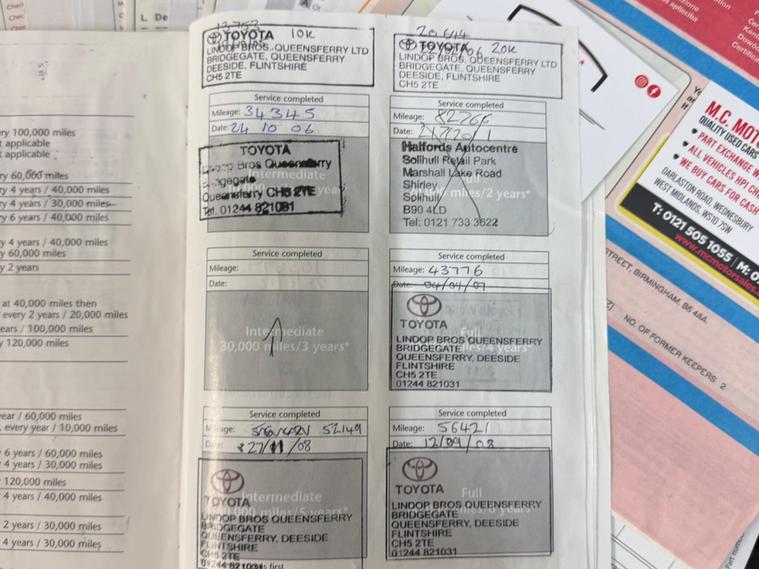 12752 10K
TOYOTA
LINDOP BROS. QUEENSFERRY LTD
BRIDGEGATE, QUEENSFERRY
DEESIDE, FLINTSHIRE
CH5 2TE
20k
TOYOTA
LINDOP BROS. QUEENSFERRY LTD
BRIDGEGATE, QUEENSFERRY
DEESIDE, FLINTSHIRE
CH5 2TE
Service completed
Mileage: 34345
Date: 24 10 06
TOYOTA
Lindop Bros Queensferry
Bridgegate
Queensferry CH5 2TE
Tel. 01244 821031
Intermediate
Service completed
Mileage:
Date:
Halfords Autocentre
Solihull Retail Park
Marshall Lake Road
Shirley
Solihull
B90 4LD
Tel: 0121 733 3622
Full
miles/2 years*
Service completed
Mileage:
Date:
Intermediate
30,000 miles/3 years*
Service completed
Mileage: 43776
Date: 04/09/07
TOYOTA
LINDOP BROS QUEENSFERRY
BRIDGEGATE
QUEENSFERRY, DEESIDE
FLINTSHIRE
CH5 2TE
01244 821031
Full
miles/4 years*
Service completed
Mileage: 52149
Date: 27/11/08
TOYOTA
LINDOP BROS QUEENSFERRY
BRIDGEGATE
QUEENSFERRY, DEESIDE
FLINTSHIRE
CH5 2TE
01244 821031
Intermediate
miles/5 years*
first
Service completed
Mileage: 56421
Date: 12/09/08
TOYOTA
LINDOP BROS QUEENSFERRY
BRIDGEGATE
QUEENSFERRY, DEESIDE
FLINTSHIRE
CH5 2TE
01244 821031
Full
100,000 miles
applicable
applicable
60,000 miles
4 years / 40,000 miles
4 years / 30,000 miles
6 years / 40,000 miles
4 years / 40,000 miles
60,000 miles
2 years
at 40,000 miles then
every 2 years / 20,000 miles
years / 100,000 miles
120,000 miles
year / 60,000 miles
every year / 10,000 miles
6 years / 60,000 miles
4 years / 30,000 miles
120,000 miles
4 years / 40,000 miles
2 years / 30,000 miles
4 years / 30,000 miles
L. De
M.C. MOTO
QUALITY USED CARS
PART EXCHANGE W
ALL VEHICLES HPI CH
WE BUY CARS FOR CASH
DARLASTON ROAD, WEDNESBURY
WEST MIDLANDS, WS10 7SW
T: 0121 505 1055 | M: 0
www.mcmotorsales.
STREET, BIRMINGHAM, B6 4AA.
NO. OF FORMER KEEPERS 2
Part num